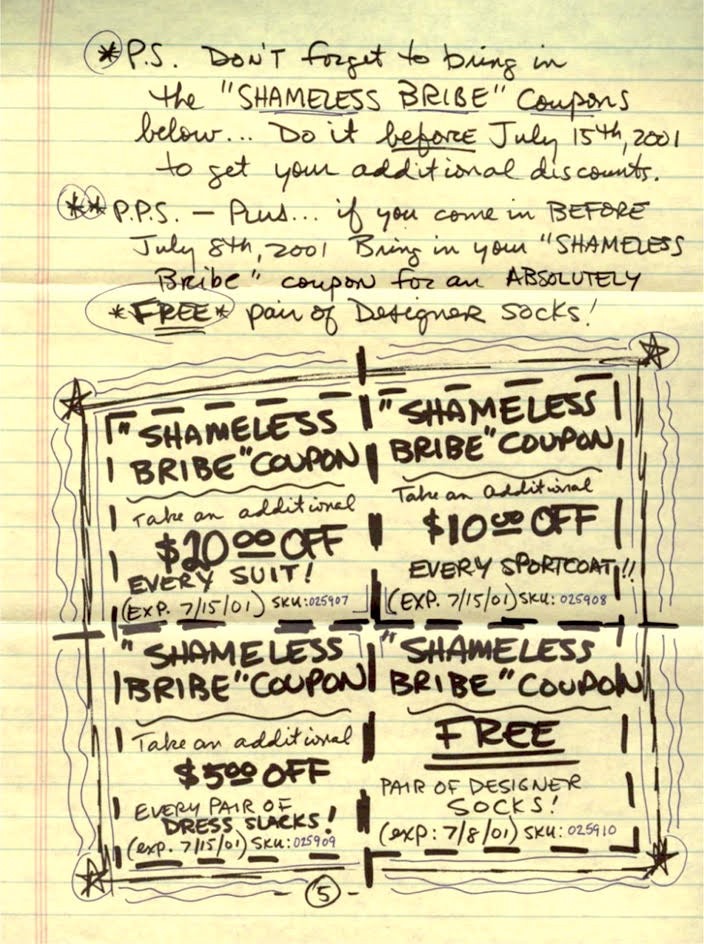 *P.S. DON'T forget to bring in
the "SHAMELESS BRIBE" Coupons
below... Do it before July 15th, 2001
to get your additional discounts.
** P.P.S. – Plus... if you come in BEFORE
July 8th, 2001 Bring in your "SHAMELESS
Bribe" coupon for an ABSOLUTELY
*FREE* pair of Designer Socks!
"SHAMELESS
BRIBE" COUPON
Take an additional
$20.00 OFF
EVERY SUIT!
(EXP. 7/15/01) SKU: 025907
"SHAMELESS
BRIBE" COUPON
Take an additional
$10.00 OFF
EVERY SPORTCOAT!!
(EXP. 7/15/01) SKU: 025908
"SHAMELESS
BRIBE" COUPON
Take an additional
$5.00 OFF
EVERY PAIR OF
DRESS SLACKS!
(exp. 7/15/01) SKU: 025909
"SHAMELESS
BRIBE" COUPON
FREE
PAIR OF DESIGNER
SOCKS!
(exp: 7/8/01) SKU: 025910
-5-